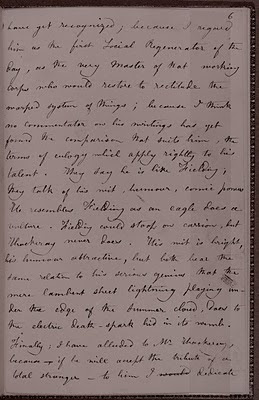 6
have yet recognized; because I regard
him as the first Social Regenerator of the
day, as the very Master of that working
corps who would restore to rectitude the
warped system of things; because I think
no commentator on his writings has yet
found the comparison that suits him, the
terms of eulogy which apply rightly to his
talent. They say he is like Fielding;
they talk of his wit, humour, comic powers
He resembles Fielding as an eagle does a
vulture. Fielding could stoop on carrion, but
Thackeray never does. His wit is bright,
his humour attractive, but both bear the
same relation to his serious genius that the
mere lambent sheet lightning playing un-
der the edge of the Summer cloud, does to
the electric death-spark hid in its womb.
Finally; I have alluded to Mr Thackeray,
because if he will accept the tribute of a
total stranger - to him I would dedicate